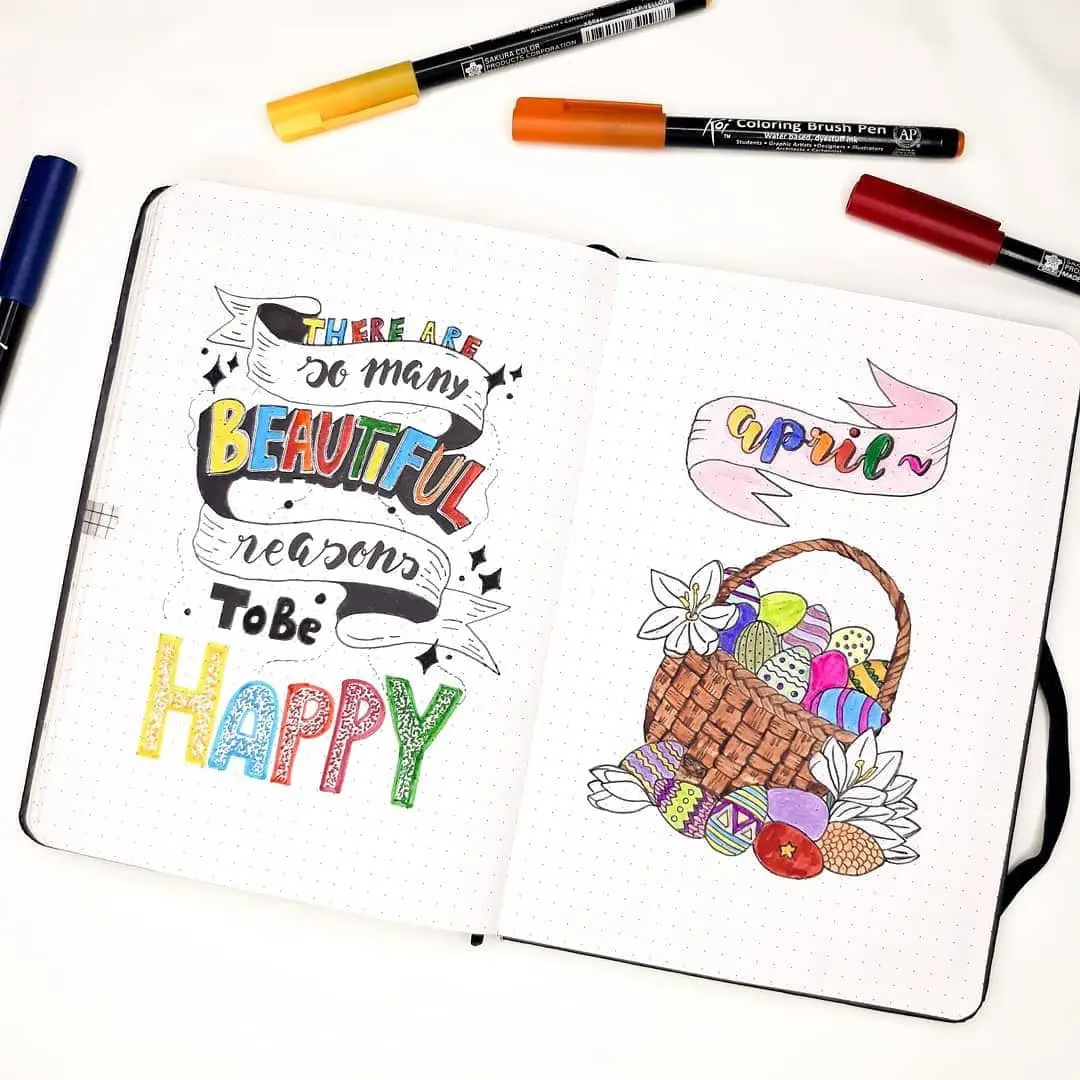 THERE ARE
so many
BEAUTIFUL
reasons
TO BE
HAPPY
april
SAKURA COLOR
PRODUCTS CORPORATION
DEEP YELLOW
Koi
Coloring Brush Pen
TM
AP
Water based, dyestuff ink
Students • Graphic Artists • Designers • Illustrators
Architects • Cartoonist